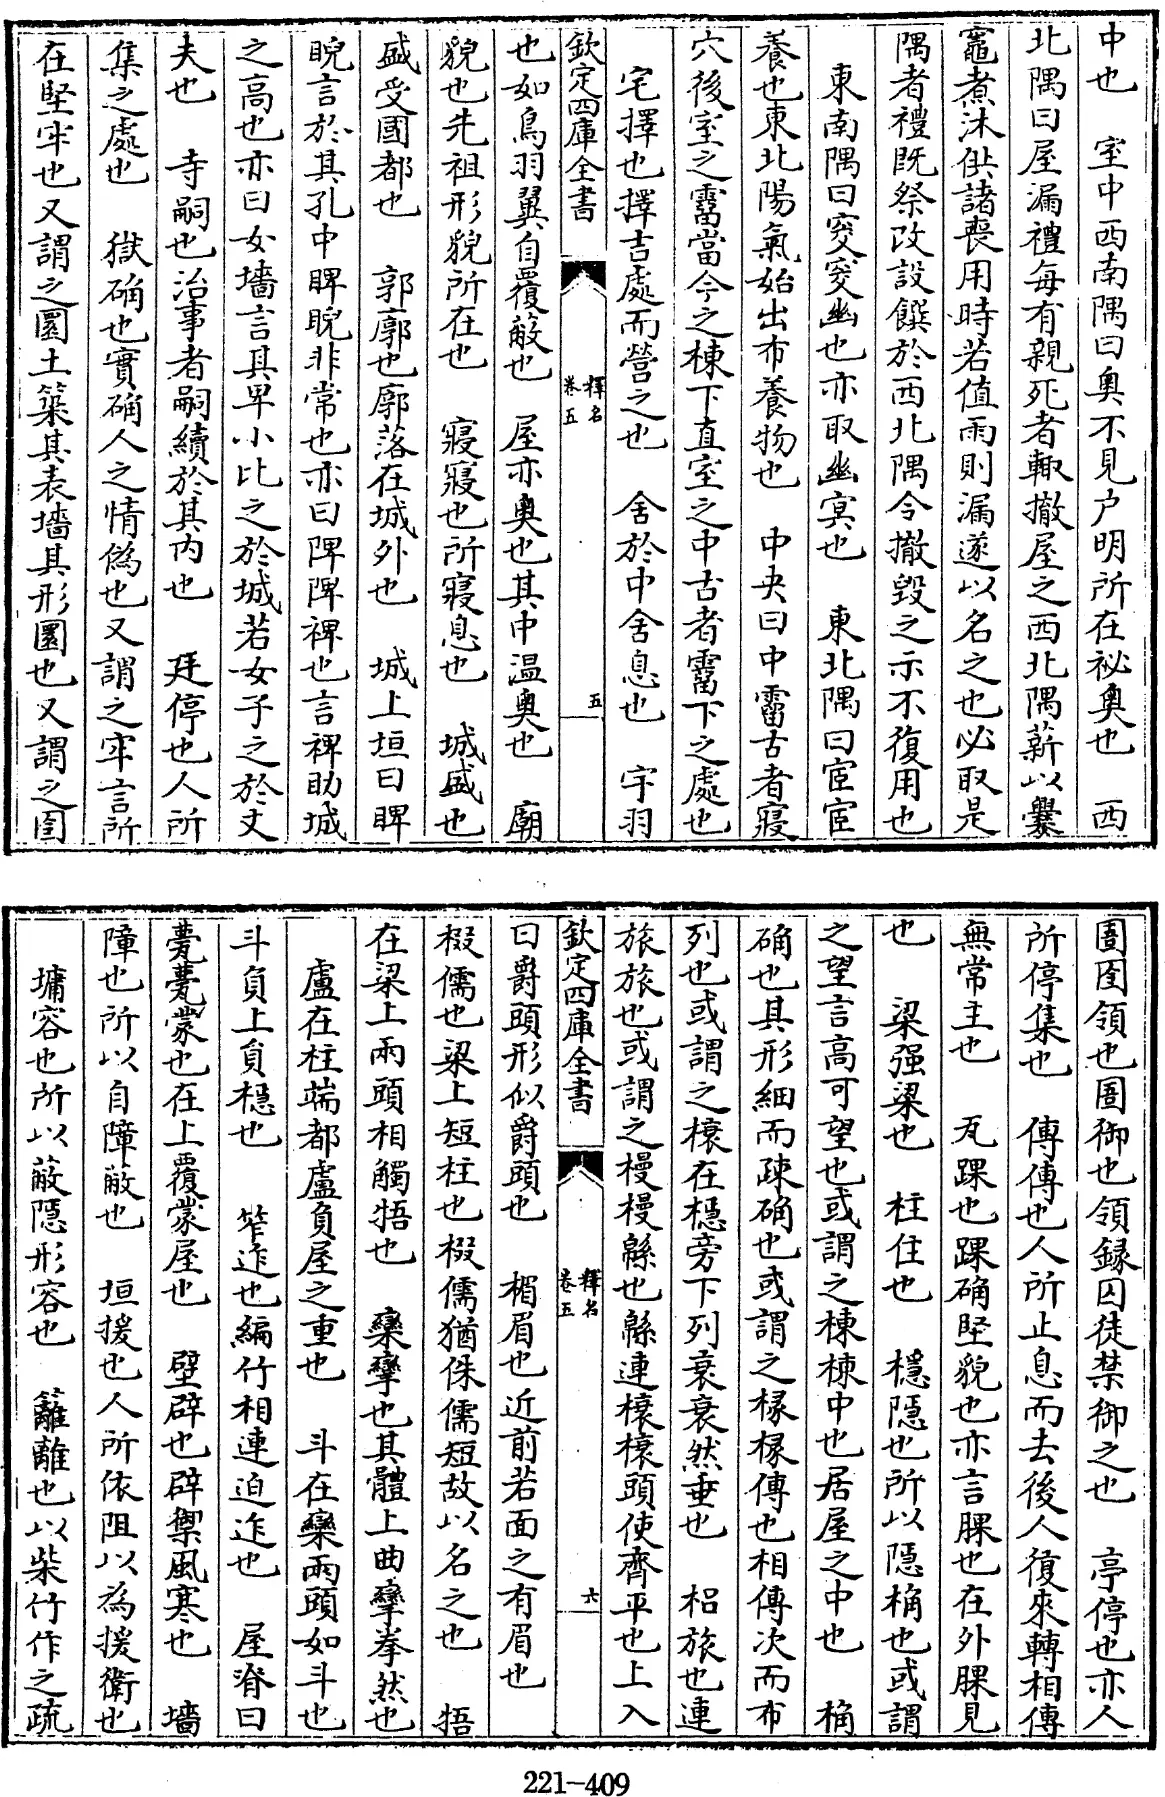 中也　室中西南隅曰奥不見户明所在祕奥也　西
北隅曰屋漏禮每有親死者輙撤屋之西北隅薪以爨
竈煮沐供諸喪用時若值雨則漏遂以名之也必取是
隅者禮既祭改設饌於西北隅令撤毀之示不復用也
東南隅曰窔窔幽也亦取幽冥也　東北隅曰宧宧
養也東北陽氣始出布養物也　中央曰中霤古者寢
穴後室之霤當今之棟下直室之中古者霤下之處也
宅擇也擇吉處而營之也　舍於中舍息也　宇羽
欽定四庫全書
釋名
卷五
五
也如鳥羽翼自覆蔽也　屋亦奥也其中温奥也　廟
貌也先祖形貌所在也　寢寢也所寢息也　城盛也
盛受國都也　郭廓也廓落在城外也　城上垣曰睥
睨言於其孔中睥睨非常也亦曰陴陴裨也言裨助城
之高也亦曰女墻言其卑小比之於城若女子之於丈
夫也　寺嗣也治事者嗣續於其内也　廷停也人所
集之處也　獄确也實确人之情偽也又謂之牢言所
在堅牢也又謂之圜土築其表墻其形圜也又謂之囹
圄囹領也圄御也領録囚徒禁御之也　亭停也亦人
所停集也　傳傳也人所止息而去後人復來轉相傳
無常主也　瓦踝也踝确堅貌也亦言腂也在外腂見
也　梁强梁也　柱住也　穩隱也所以隱桷也或謂
之望言高可望也或謂之棟棟中也居屋之中也　桷
确也其形細而疎确也或謂之椽椽傳也相傳次而布
列也或謂之榱在穩旁下列衰衰然垂也　梠旅也連
旅旅也或謂之槾槾緜也緜連榱榱頭使齊平也上入
欽定四庫全書
釋名
卷五
六
曰爵頭形似爵頭也　楣眉也近前若面之有眉也
棳儒也梁上短柱也棳儒猶侏儒短故以名之也　牾
在梁上兩頭相觸牾也　欒攣也其體上曲攣拳然也
盧在柱端都盧負屋之重也　斗在欒兩頭如斗也
斗負上負穩也　笮迮也編竹相連迫迮也　屋脊曰
甍甍蒙也在上覆蒙屋也　壁辟也辟禦風寒也　墻
障也所以自障蔽也　垣援也人所依阻以為援衛也
墉容也所以蔽隱形容也　籬離也以柴竹作之疏
221-409